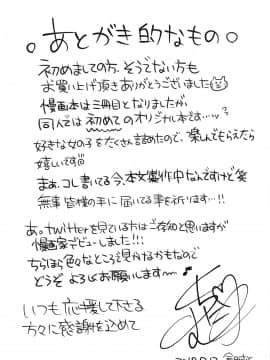 。あとがき的なもの。
初めましての方、そうでない方も
お買い上げ頂きありがとうございました
漫画本は三冊目となりましたが、
同人では初めてのオリジナル本です…ッ?
好きな女の子をたくさん詰めたので、楽しんでもらえたら
嬉しいです
まぁ、コレ書いてる今、本文製作中なんですけど笑
無事皆様の手に届いてる事を祈ります…!!
あ。twitterを見ている方はご存知と思いますが
漫画家デビューしました!!!
ちらほら色々なところで見かけるかもなので
どうぞよろしくお願いします〜♪
いつも応援して下さる
方々に感謝を込めて